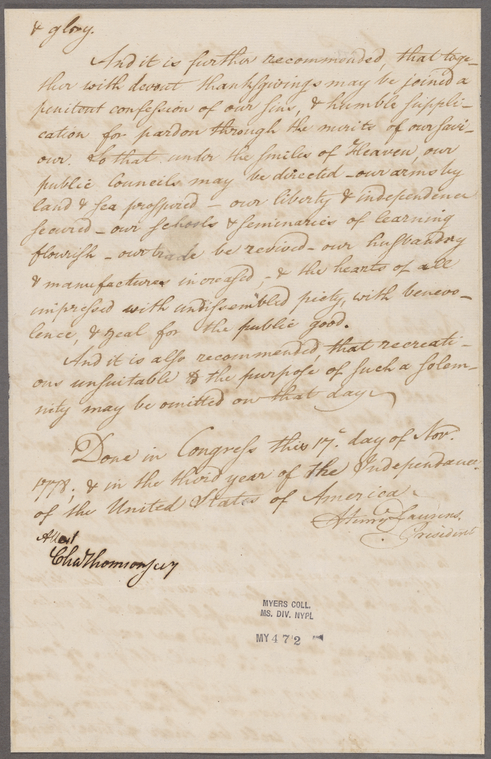 & glory.
And it is further recommended, that toge-
ther with devout thanksgivings may be joined a
penitent confession of our sins, & humble suppli-
cation for pardon through the merits of our Savi-
our. So that under the smiles of Heaven, our
public Councils may be directed – our arms by
land & sea prospered – our liberty & independence
secured – our schools & seminaries of learning
flourish – our trade be revived – our husbandry
& manufactures increased, – & the hearts of all
impressed with undissembled piety, with benevo-
lence, & zeal for the public good.
And it is also recommended, that recreati-
ons unsuitable to the purpose of such a solem-
nity may be omitted on that day.
Done in Congress this 17th day of Nov.
1778, & in the third year of the Independance
of the United States of America.
Henry Laurens.
President
Attest
Cha Thomson secy
MYERS COLL.
MS. DIV. NYPL
MY 472